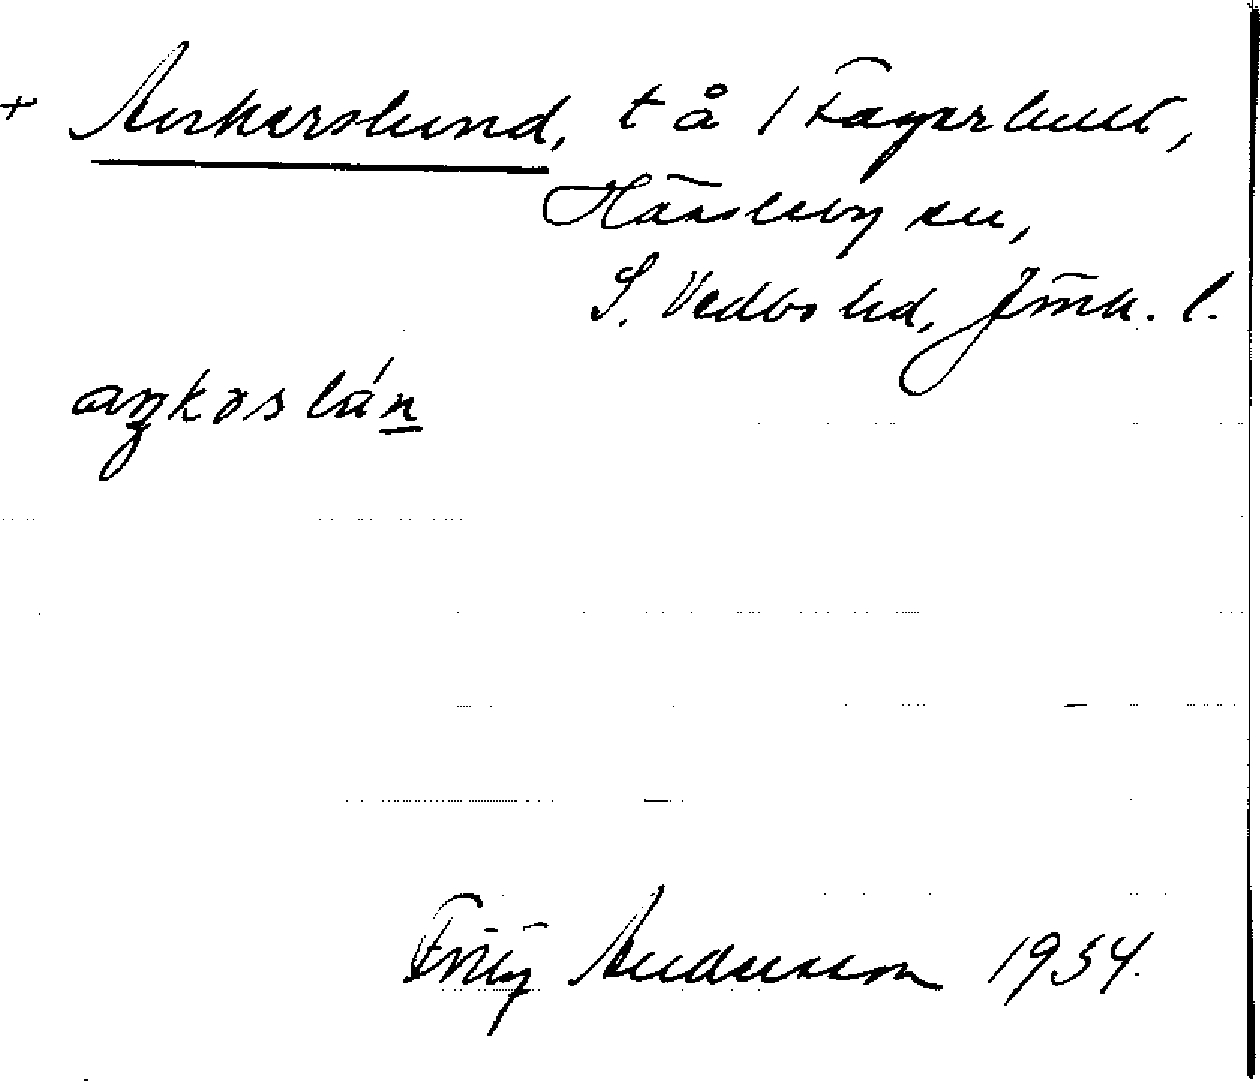 + Ankerslund, t å 1 Fagerhult,
Hässleby sn,
S. Vedbo hd, Jönk. l.
aŋkəslún
Fritz Andersson 1934.